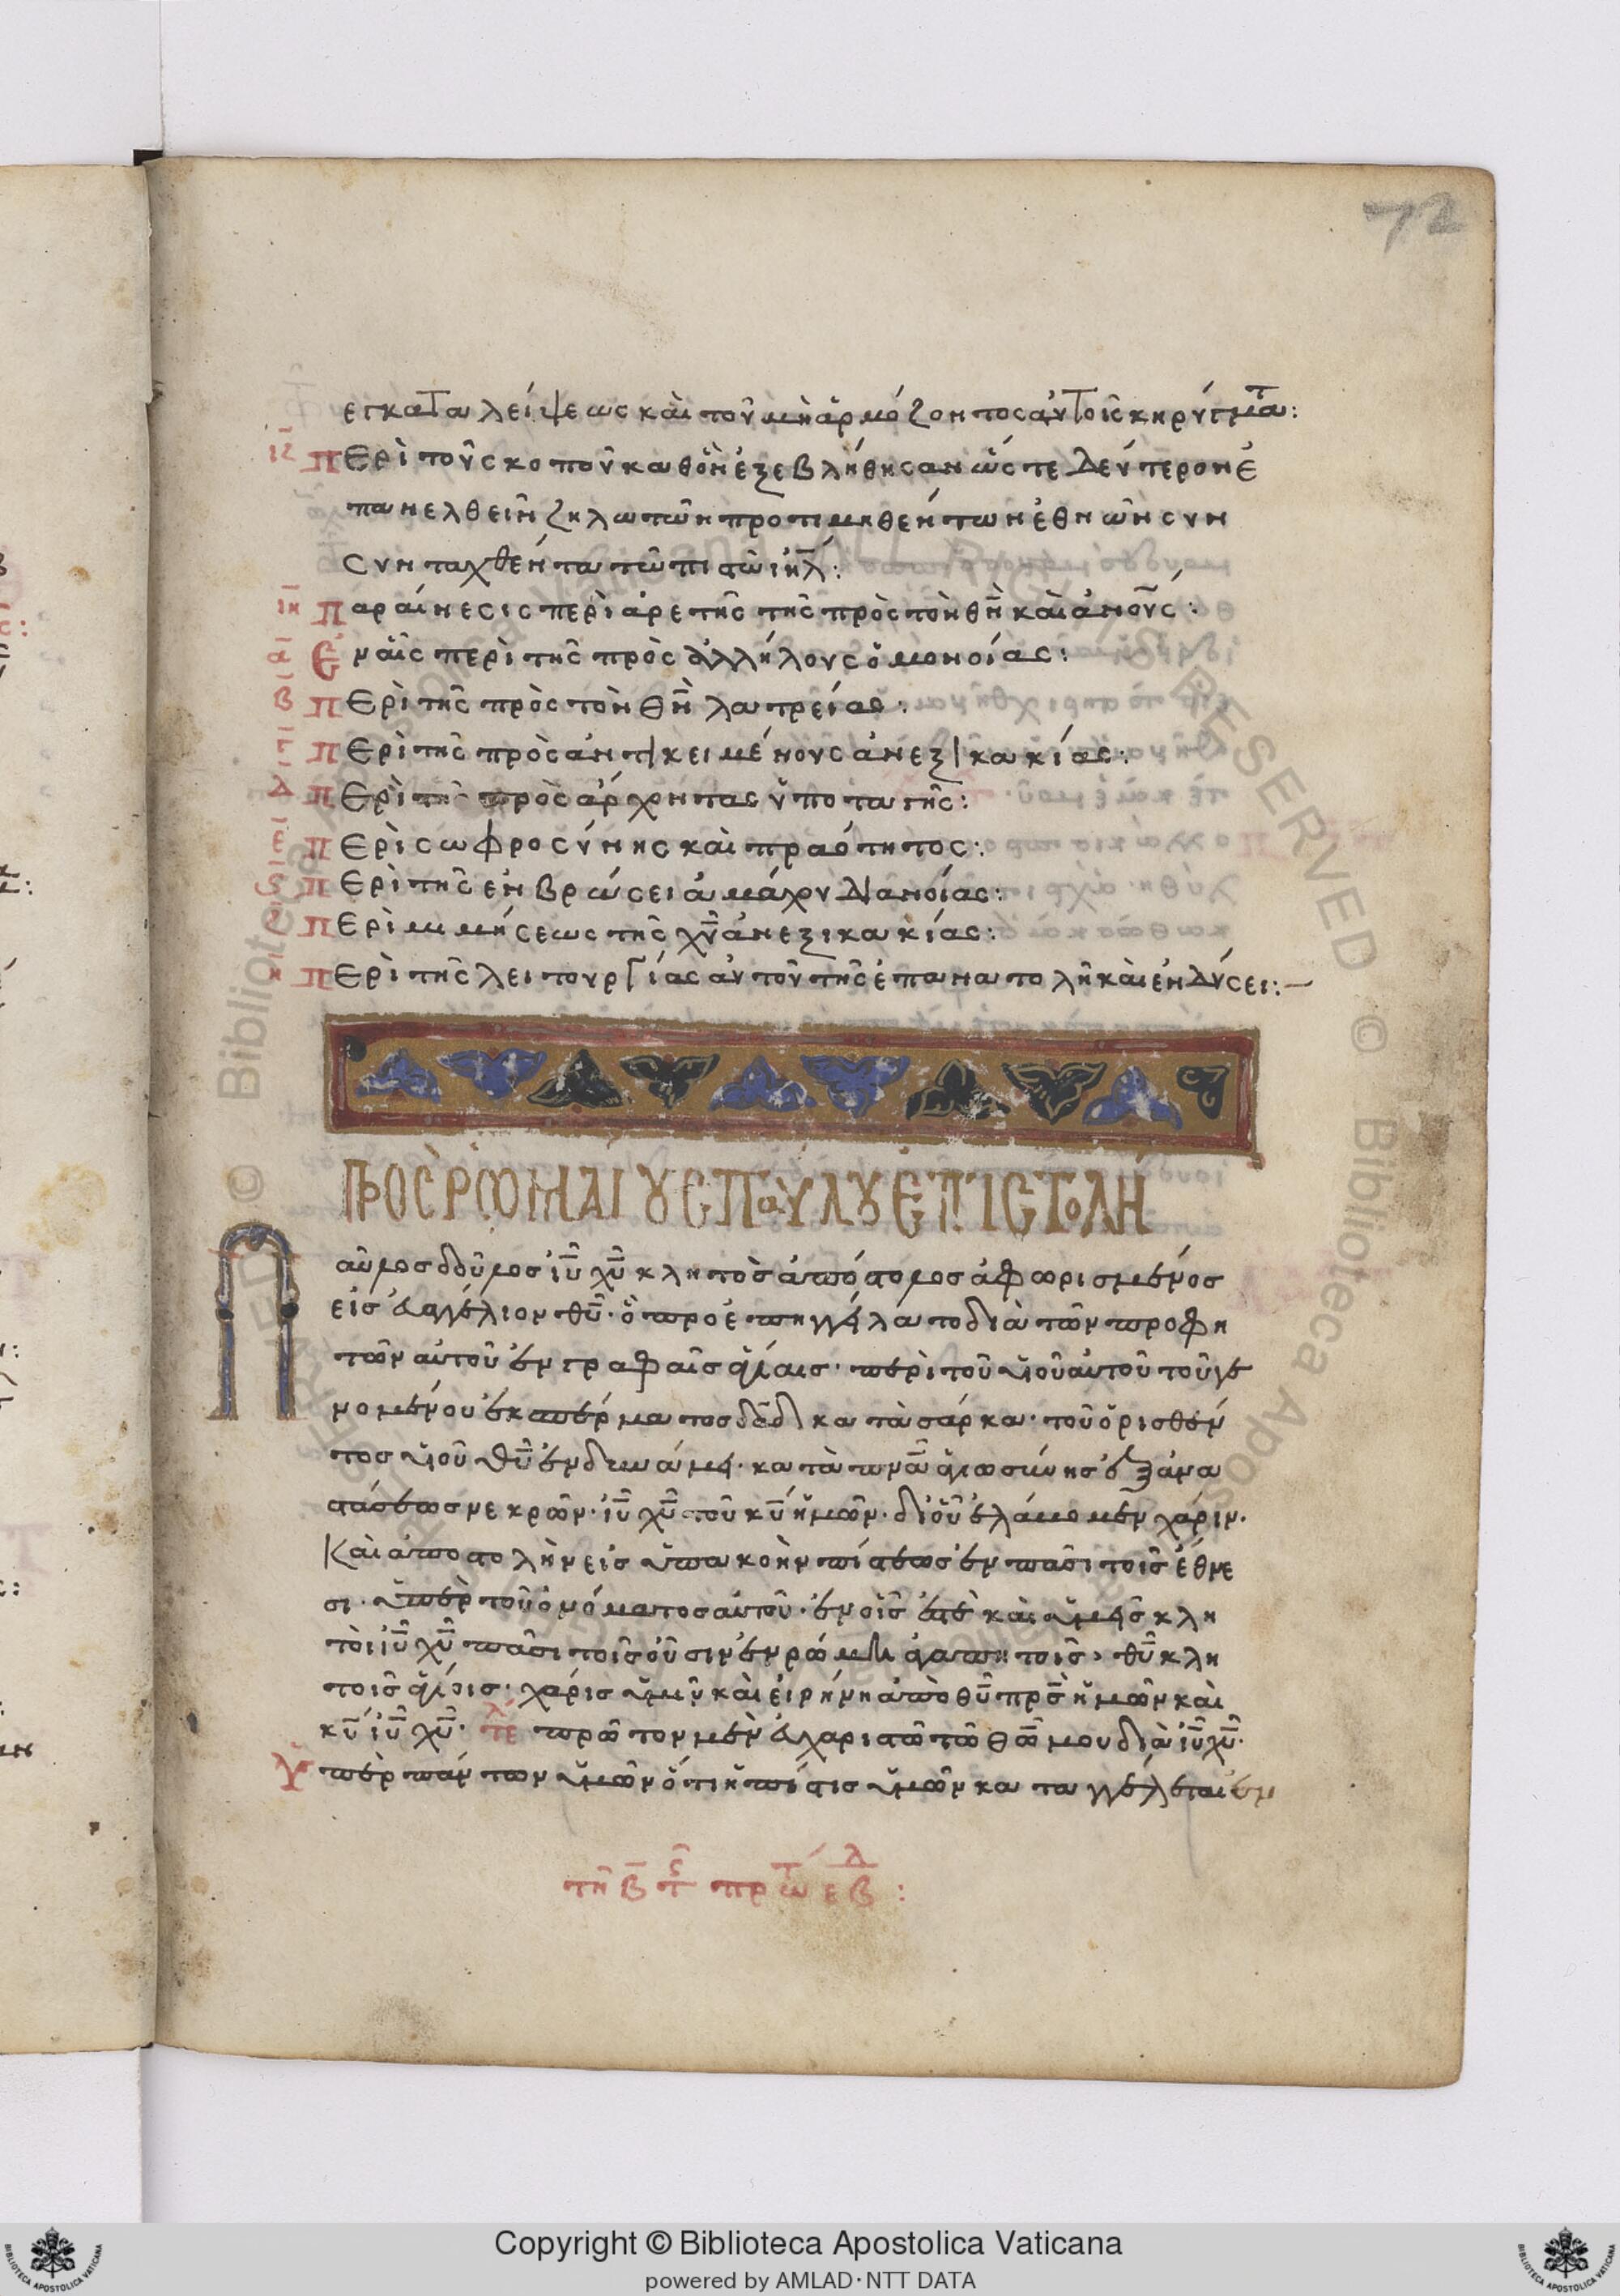 72
εγκαταλείψεως καὶ τοῦ μὴ ἁρμόζοντος αὐτοῖς κηρύγμα̅τ:
ιζ̅ Περὶ τοῦ σκοποῦ καθὃν ἐξεβλήθησαν ὥς τε δεύτερον ἐ
πανελθεῖν ζηλωτῶν προτιμηθέντων ἐθνῶν συν
συνταχθέντα τῶ πιστῶ ιη̅λ:
ιη̅ Παραίνεσις περὶ ἀρετῆς τῆς πρὸς τὸν θν̅ καὶ ἀνου̅ς:
α̅ Ἐν αἷς περὶ τῆς πρὸς ἀλλήλους ὁμονοίας:
β̅ Περὶ τῆς πρὸς τὸν θν̅ λατρείας:
γ̅ Περὶ τῆς πρὸς ἀντικειμένους ἀνεξικακίας:
δ̅ Περὶ τῆς πρὸς ἄρχοντας ὑποταγῆς:
ε̅ Περὶ σωφροσύνης καὶ πραότητος:
ς̅ Περὶ τῆς ἐν βρώσει ἀμάχου διανοίας:
ζ̅ Περὶ μιμήσεως τῆς χυ̅ ἀνεξικακίας:
η̅ Περὶ τῆς λειτουργίας αὐτοῦ τῆς ἐπανατολῆ καὶ ἐν δύσει:
ΠΡΟΣ ΡΩΜΑΙΟΥΣ ΠΑΥΛΟΥ ΕΠΙΣΤΟΛΗ
Παῦλος δοῦλος ιυ̅ χυ̅ κλητὸς ἀπόστολος ἀφωρισμένος
εἰς εὐαγγέλιον θυ̅· ὃ προεπηγγείλατο διὰ τῶν προφη
τῶν αὐτοῦ ἐν γραφαῖς ἁγίαις· περὶ τοῦ υἱοῦ αὐτοῦ τοῦ γε
νομένου ἐκ σπέρματος δα̅δ κατὰ σάρκα· τοῦ ὁρισθέν
τος υἱοῦ θυ̅ ἐν δυνάμει· κατὰ πνα̅ ἁγιωσύνης ἐξ ἀνα
στάσεως νεκρῶν· ιυ̅ χυ̅ τοῦ κυ̅ ἡμῶν· δι' οὗ ἐλάβομεν χάριν·
Καὶ ἀποστολὴν εἰς ὑπακοὴν πίστεως ἐν πᾶσι τοῖς ἔθνε
σι· ὑπὲρ τοῦ ὀνόματος αὐτοῦ· ἐν οἷς ἐστὲ καὶ ὑμεῖς κλη
τοὶ ιυ̅ χυ̅ πᾶσι τοῖς οὖσιν ἐν ρώμη ἀγαπητοῖς θυ̅ κλη
τοῖς ἁγίοις· χάρις ὑμῖν καὶ εἰρήνη ἀπὸ θυ̅ πρς̅ ἡμῶν καὶ
κυ̅ ιυ̅ χυ̅· τε̅λ πρῶτον μὲν εὐχαριστῶ τῶ θω̅ μου διὰ ιυ̅ χυ̅·
Ὑπὲρ πάντων ὑμῶν ὅτι ἡ πίστις ὑμῶν καταγγέλλεται ἐν
τῆ β̅ τ̅ς πρώ̅τ εβ̅δ:
Copyright © Biblioteca Apostolica Vaticana
powered by AMLAD·NTT DATA